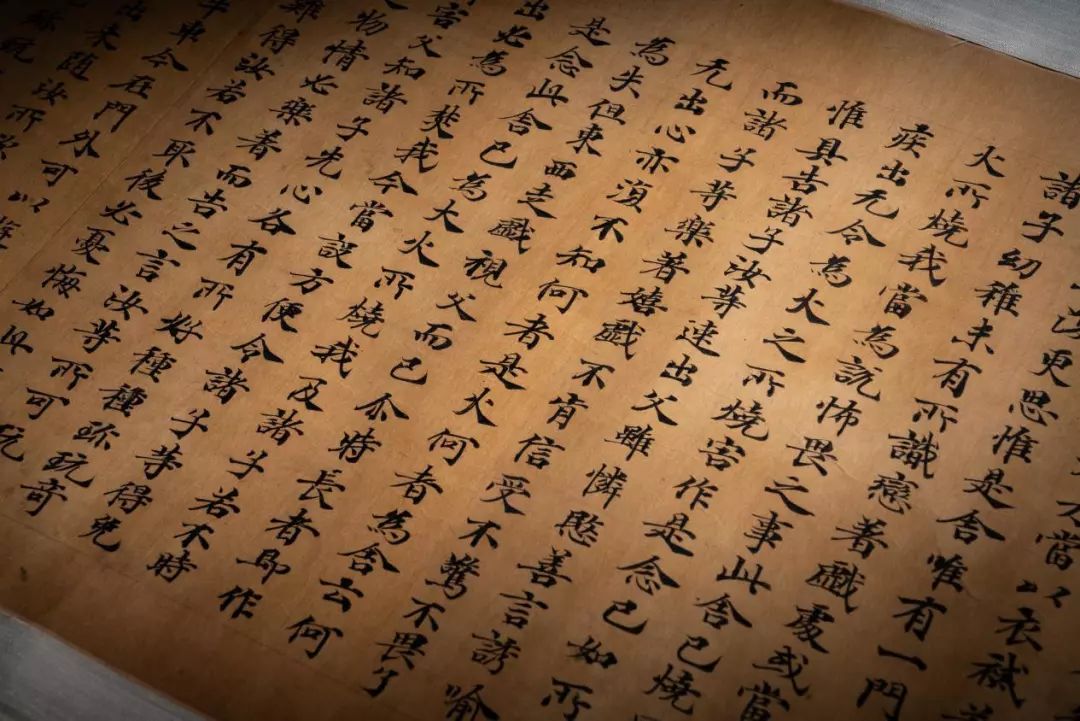 當以衣裓
更思惟是舍唯有一門
諸子幼稚未有所識戀著戲處或當
火所燒我當為說怖畏之事此舍已燒
疾出无令為火之所燒害作是念已如所
惟具告諸子汝等速出父雖憐愍善言誘喻
而諸子等樂著嬉戲不肯信受不驚不畏了
无出心亦復不知何者是火何者為舍云何
為失但東西走戲視父而已尒時長者即作
是念此舍已為大火所燒我及諸子若不時
出必為所焚我今當設方便令諸子等得免
害父知諸子先心各有所好種種珍玩奇
物情必樂著而告之言汝等所可玩
難得汝若不取後必憂悔如此
羊車今在門外可以遊
出來随汝所欲